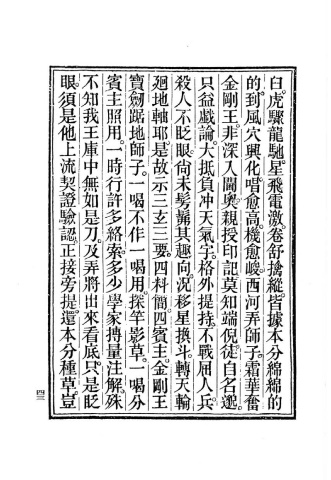 白虎驟龍馳星飛電激卷舒擒縱皆據本分綿綿的
的到風穴興化唱愈高機愈峻西河弄師子霜華奮
金剛王非深入閫奧親授印記莫知端倪徒自名邈
只益戲論大抵負冲天氣宇格外提持不戰屈人兵
殺人不眨眼尚未髣髴其趣向況移星換斗轉天輪
迴地軸耶是故示三玄三要四料簡四賓主金剛王
寶劍踞地師子一喝不作一喝用探竿影草一喝分
賓主照用一時行許多絡索多少學家摶量注解殊
不知我王庫中無如是刀及弄將出來看底只是眨
眼須是他上流契證驗認正接旁提還本分種草豈
四三